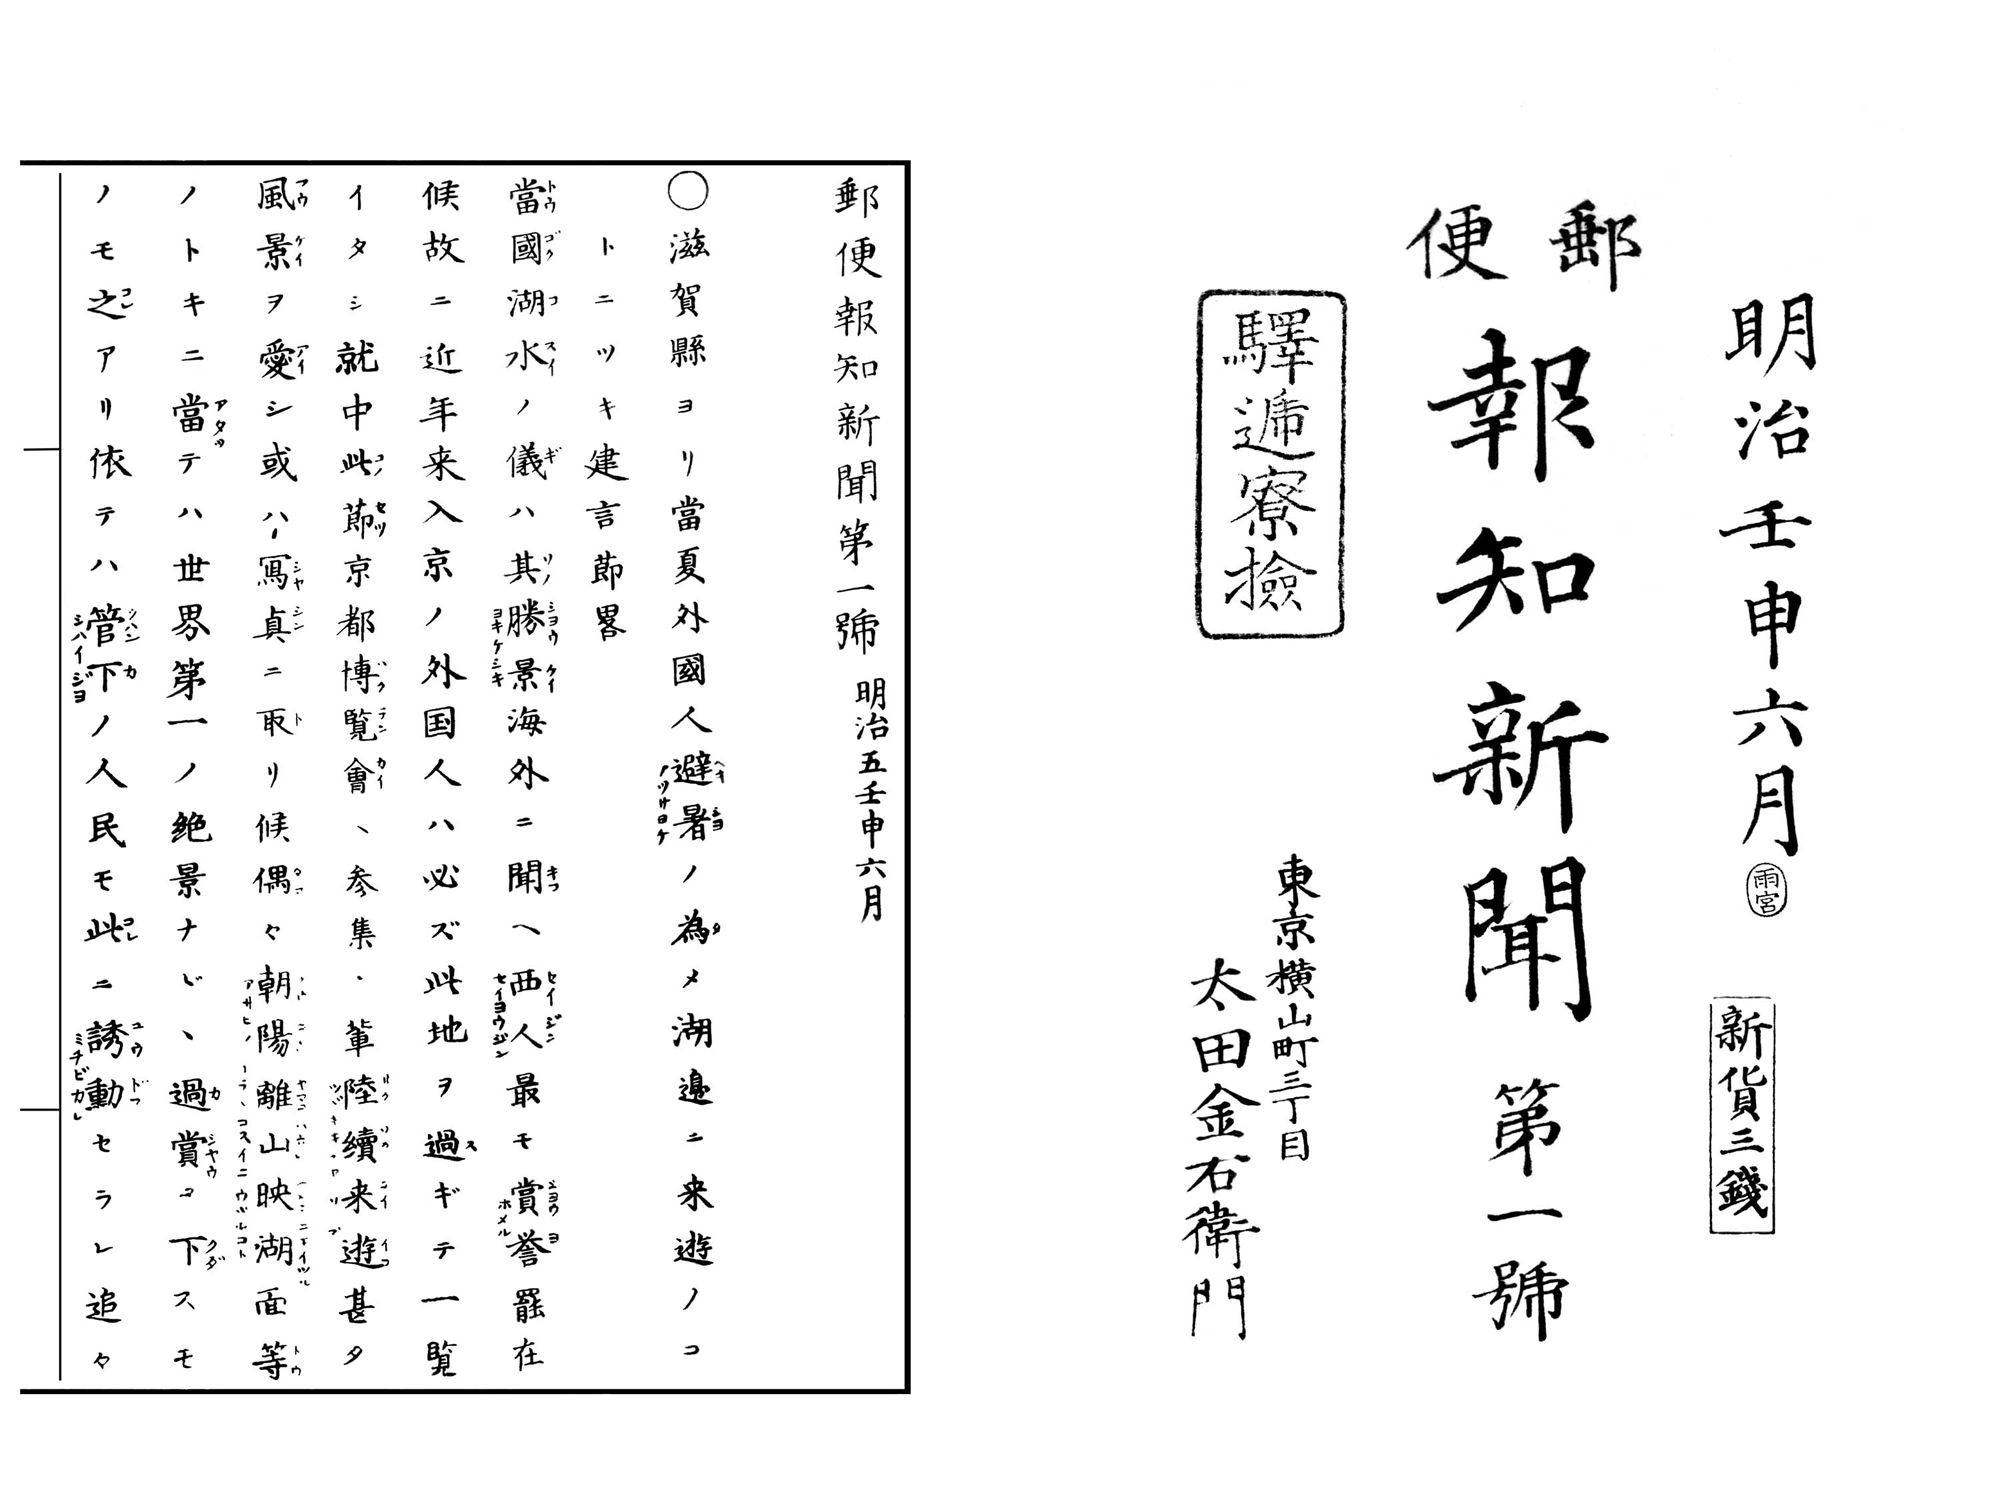 明治壬申六月
雨宮
新貨三錢
郵便
報知新聞 第一號
驛遞寮撿
東京横山町三丁目
太田金右衛門
郵便報知新聞第一號 明治五壬申六月
〇滋賀縣ヨリ當夏外國人避暑ノ為メ湖邉ニ来遊ノコ
トニツキ建言節畧
當國湖水ノ儀ハ其勝景海外ニ聞ヘ西人最モ賞誉罷在
候故ニ近年来入京ノ外国人ハ必ズ此地ヲ過ギテ一覧
イタシ就中此節京都博覧會、参集ノ輩陸續来遊甚タ
風景ヲ愛シ或ハ寫真ニ取リ候偶々朝陽離山映湖面等
ノトキニ當テハ世界第一ノ絶景ナド、過賞コ下スモ
ノモ之アリ依テハ管下ノ人民モ此ニ誘動セラレ追々